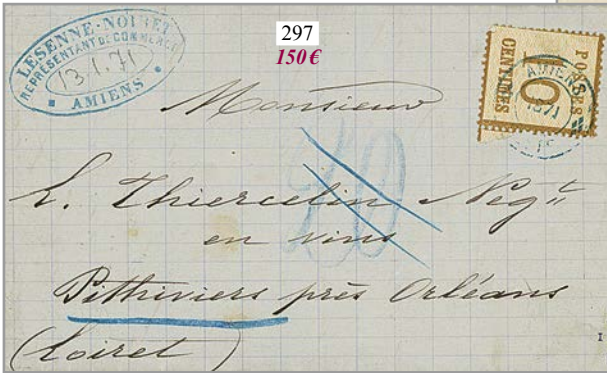 LESENNE-NOIRET
REPRÉSENTANT DE COMMERCE
13.1.71
AMIENS
297
150€
POSTES
10
CENTIMES
AMIENS
1871
Monsieur
L. Thiercelin Negt
en vins
Pithiviers près Orléans
(Loiret)
20